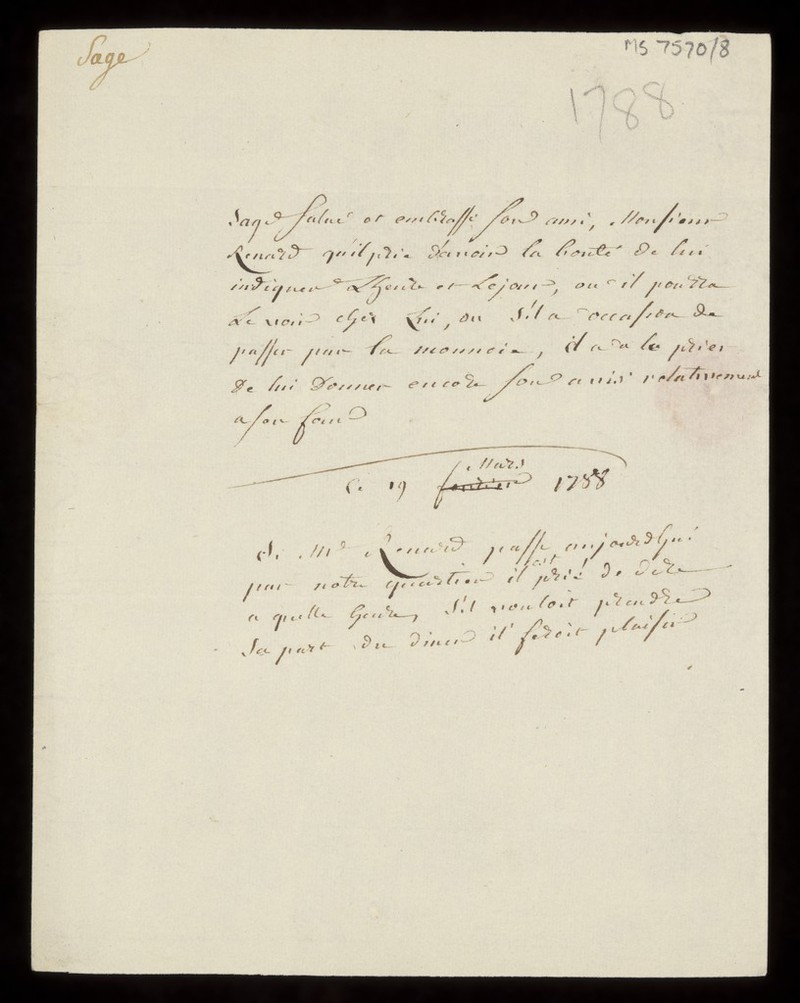 Sage
MS 7570/8
1788
Sage salue et embrasse son ami, Monsieur
Renard qu'il prie d'avoir la bonté de lui
indiquer Lheure et Lejour, ou il pourra
Le voir chez Lui, ou s'il a occasion de
passer par la monnoie, il a a le prier
de lui donner encore son avis relativement
a son
Ce 19 Mars 1788
Si Mr Renard passe aujourdhui
par notre quartier il est prié de dire
a quelle heure, s'il vouloit prendre
Sa part du diner il feroit plaisir